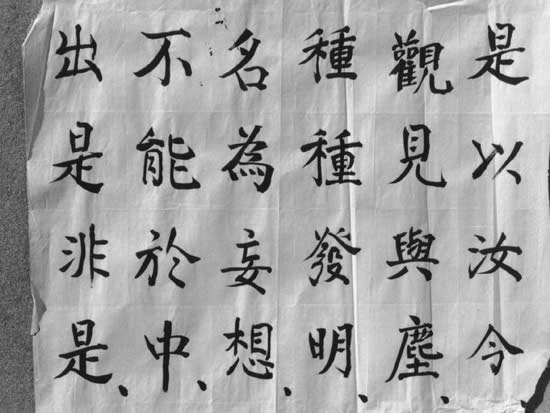 是以汝今
觀見與塵、
種種發明、
名為妄想、
不能於中、
出是非是、